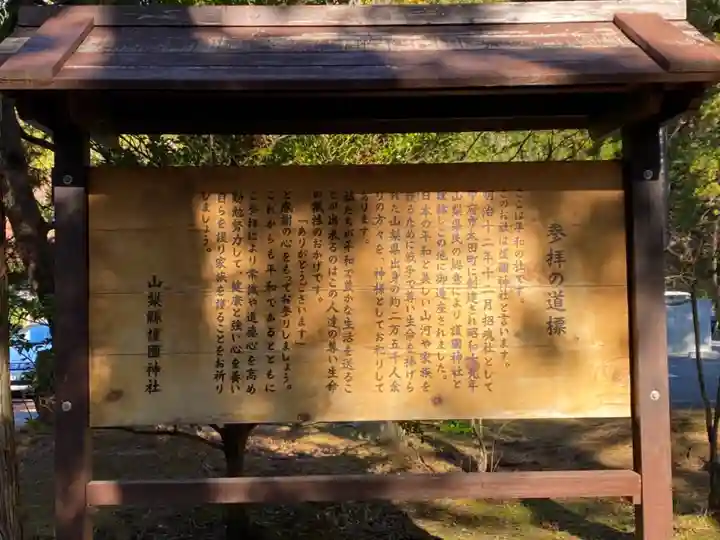 参拝の道標
ここは平和の社です。
このお社は護國神社と言います。
明治十二年十一月招魂社として
太田町に創建され昭和十九年
山梨県民の総意により護國神社と
この地に御遷座されました。
日本の平和と美しい山河や家族を
守るために戦争で尊い生命を捧げら
れた山梨県出身の約二万五千人余
りの方々を、神様としてお祀りして
あります。
私たちが平和で豊かな生活を送るこ
とが出来るのはこの人達の尊い生命
の犠牲のおかげです。
「ありがとうございます」
と感謝の心をもってお参りしましょう。
これからも平和であるとともに
この社により常識や道徳心を高め
勤勉努力して、健康と強い心を養い
自らを護り家族を護ることをお祈り
しましょう。
山梨縣護國神社